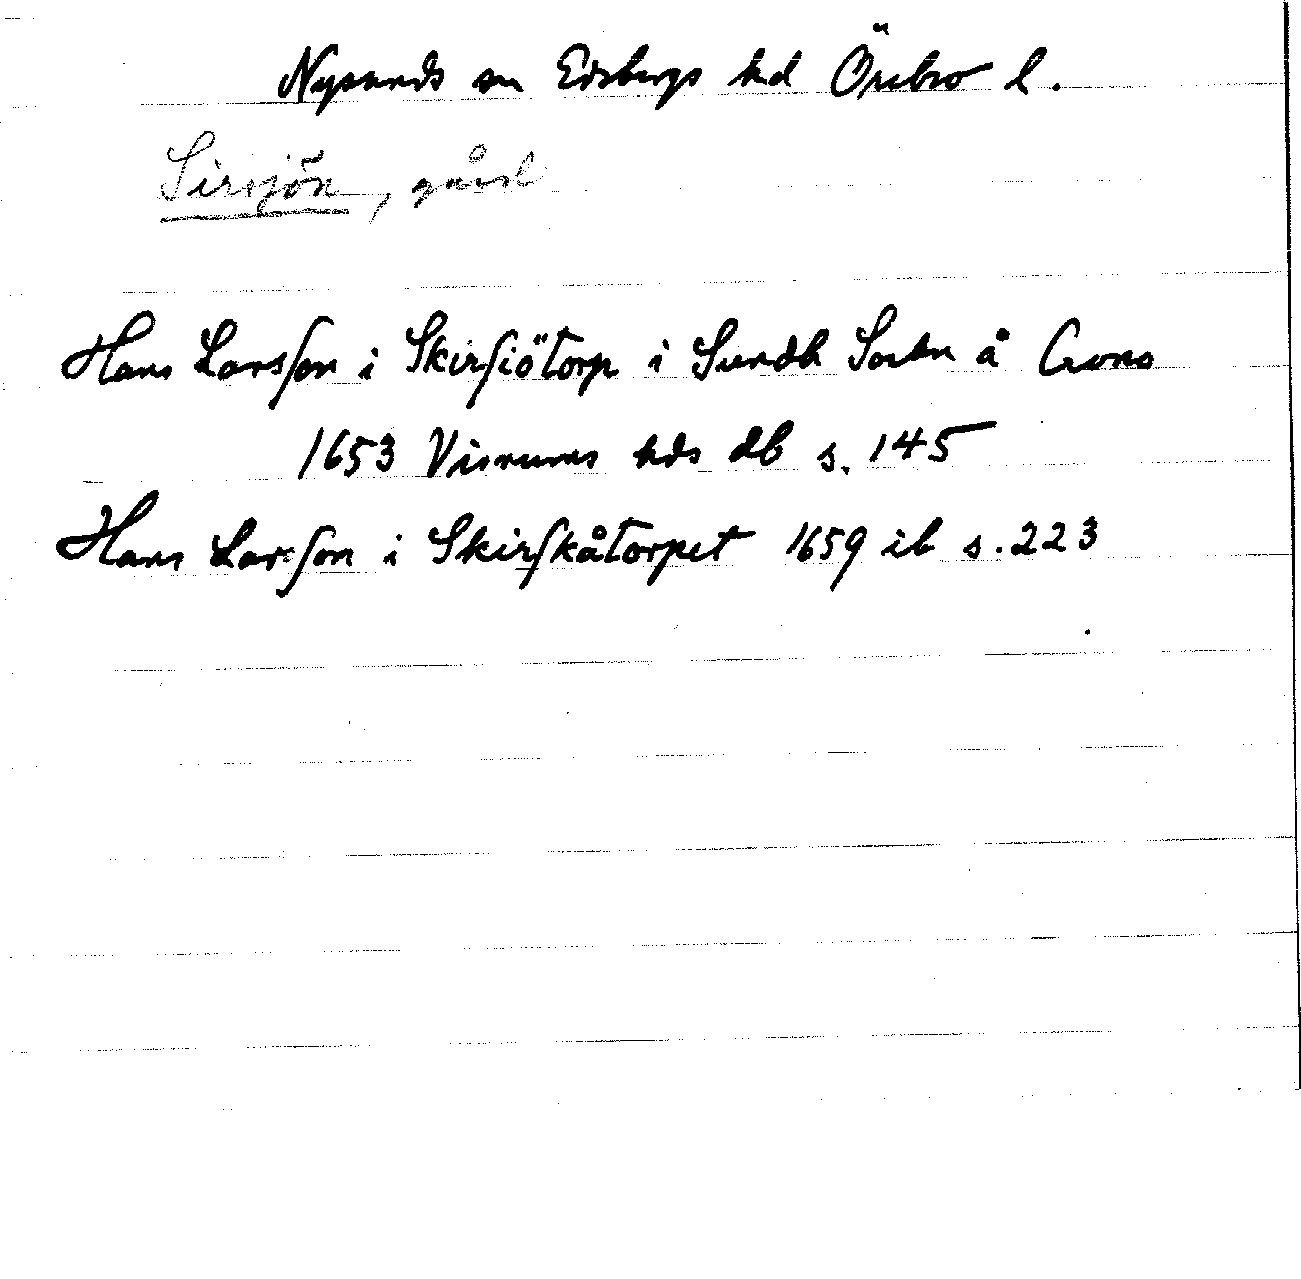 Nysunds sn Edsbergs hd Örebro l.
Sirsjön, gård
Hans Larsson i Skirsiötorp i Sundh Sockn å Crono
1653 Visnums hds db s. 145
Hans Larsson i Skirskåtorpet 1659 ib s. 223